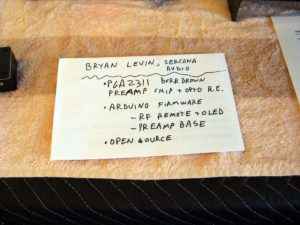 BRYAN LEVIN, SERCONA
AUDIO
• PGA2311 BURR BROWN
PREAMP CHIP + OPTO R.E.
• ARDUINO FIRMWARE
– RF REMOTE + OLED
– PREAMP BASE
• OPEN SOURCE